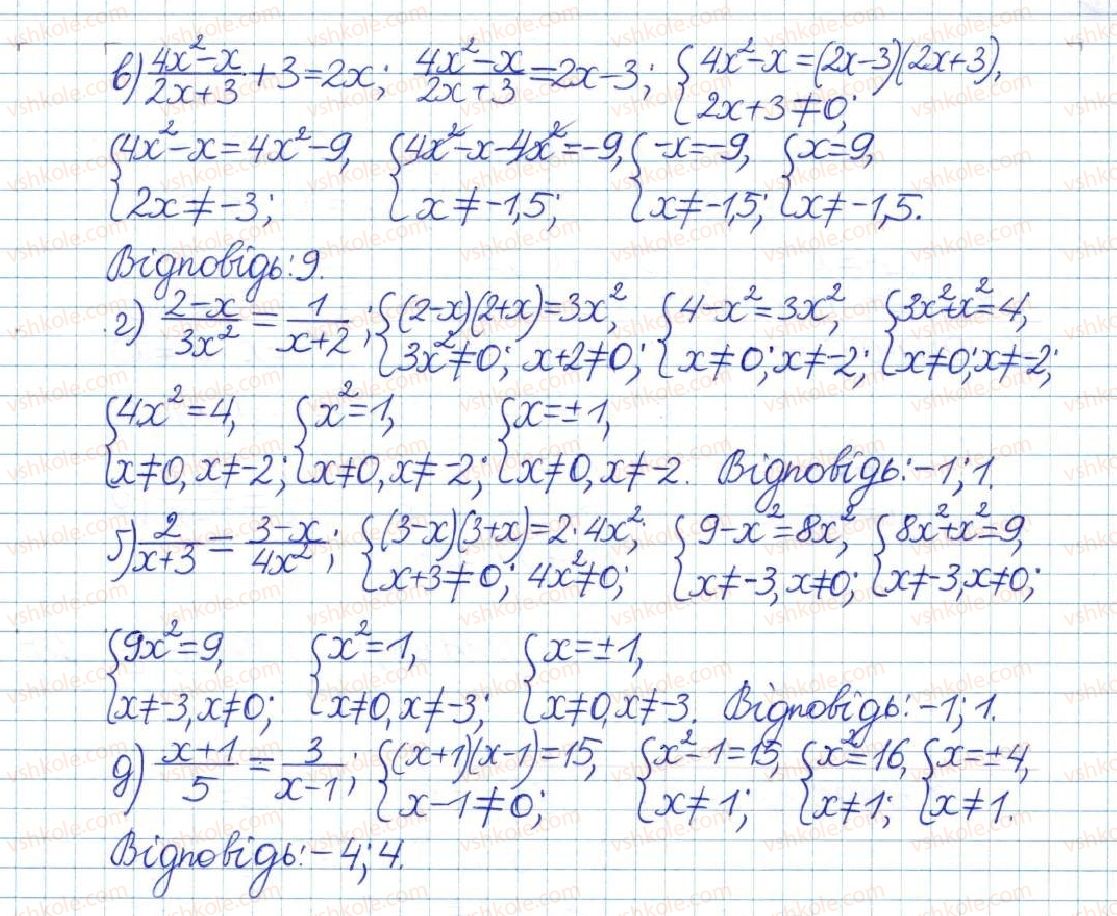 в) (4x²−x)/(2x+3) + 3 = 2x; (4x²−x)/(2x+3) = 2x−3; { 4x²−x = (2x−3)(2x+3), 2x+3 ≠ 0;
{ 4x²−x = 4x²−9, 2x ≠ −3; { 4x²−x−4x² = −9, x ≠ −1,5; { −x = −9, x ≠ −1,5; { x = 9, x ≠ −1,5.
Відповідь: 9.
г) (2−x)/(3x²) = 1/(x+2); { (2−x)(2+x) = 3x², 3x² ≠ 0; x+2 ≠ 0; { 4−x² = 3x², x ≠ 0; x ≠ −2; { 3x²+x² = 4, x ≠ 0; x ≠ −2;
{ 4x² = 4, x ≠ 0, x ≠ −2; { x² = 1, x ≠ 0, x ≠ −2; { x = ±1, x ≠ 0, x ≠ −2. Відповідь: −1; 1.
ґ) 2/(x+3) = (3−x)/(4x²); { (3−x)(3+x) = 2·4x²; x+3 ≠ 0; 4x² ≠ 0; { 9−x² = 8x², x ≠ −3, x ≠ 0; { 8x²+x² = 9, x ≠ −3, x ≠ 0;
{ 9x² = 9, x ≠ −3, x ≠ 0; { x² = 1, x ≠ 0, x ≠ −3; { x = ±1, x ≠ 0, x ≠ −3. Відповідь: −1; 1.
д) (x+1)/5 = 3/(x−1); { (x+1)(x−1) = 15, x−1 ≠ 0; { x²−1 = 15, x ≠ 1; { x² = 16, x ≠ 1; { x = ±4, x ≠ 1.
Відповідь: −4; 4.
vshkole.com